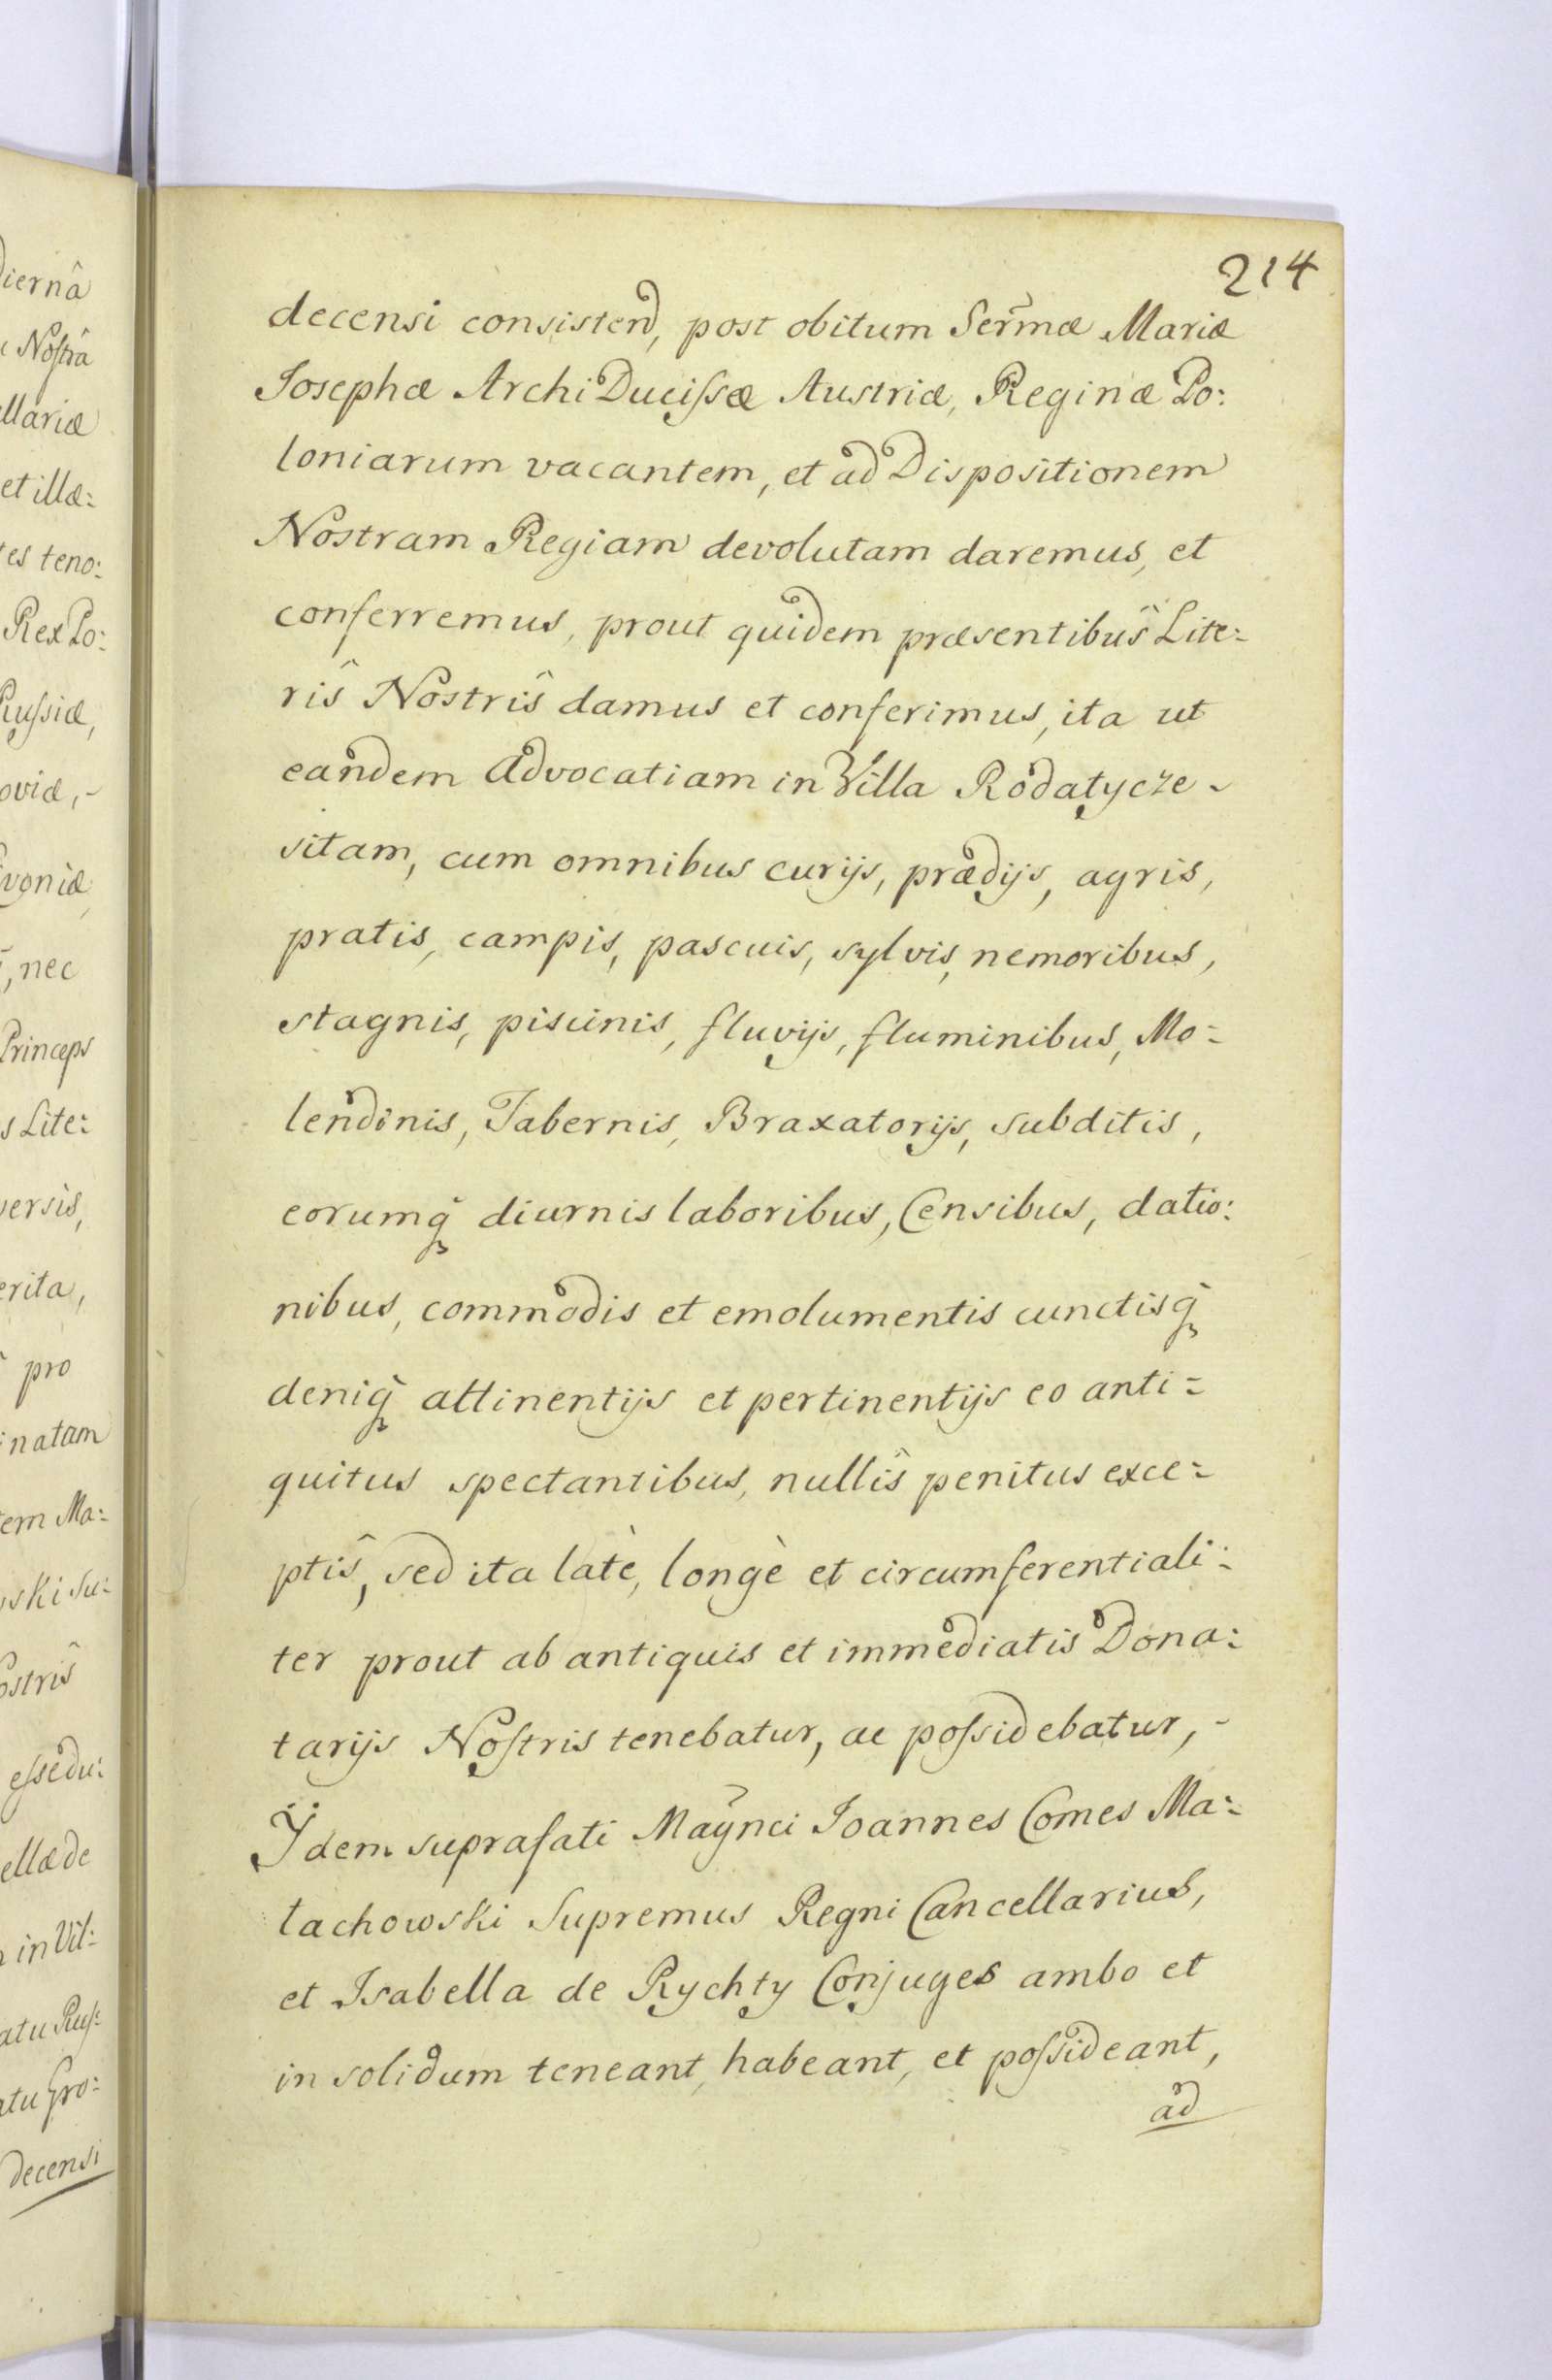 214
decensi consistend, post obitum Ser̃mæ Mariæ
Josephæ ArchiDucissæ Austriæ, Reginæ Po:
loniarum vacantem, et ad Dispositionem
Nostram Regiam devolutam daremus, et
conferremus, prout quidem præsentibus Lite:
rîs Nostrîs damus et conferimus, ita ut
eandem Advocatiam in Villa Rodatycze -
sitam, cum omnibus curijs, prædijs, agris,
pratis, campis, pascuis, sylvis, nemoribus,
stagnis, piscinis, fluvijs, fluminibus, Mo:
lendinis, Tabernis, Braxatorijs, subditis,
eorumq̃ diurnis laboribus, Censibus, datio:
nibus, commodis et emolumentis cunctisq̃
deniq̃ attinentijs et pertinentijs eo anti:
quitus spectantibus, nullîs penitus exce:
ptîs, sed ita latè, longè et circumferentiali:
ter prout ab antiquis et immediatis Dona:
tarijs Nostris tenebatur, ac possidebatur, -
Ijdem suprafati Magñci Joannes Comes Ma:
łachowski Supremus Regni Cancellarius,
et Isabella de Rychty Conjuges ambo et
in solidum teneant, habeant, et possideant,
ad
ierna
Nostrâ
llariæ
et illæ:
es teno:
Rex Po:
Russiæ,
oviæ, -
voniæ
, nec
Princeps
s Lite:
versis,
erita,
pro
natam
tem Ma:
ski Su:
ostrîs
essedu:
ellæ de
in Vil:
atu Russ:
atu Gro:
decensi